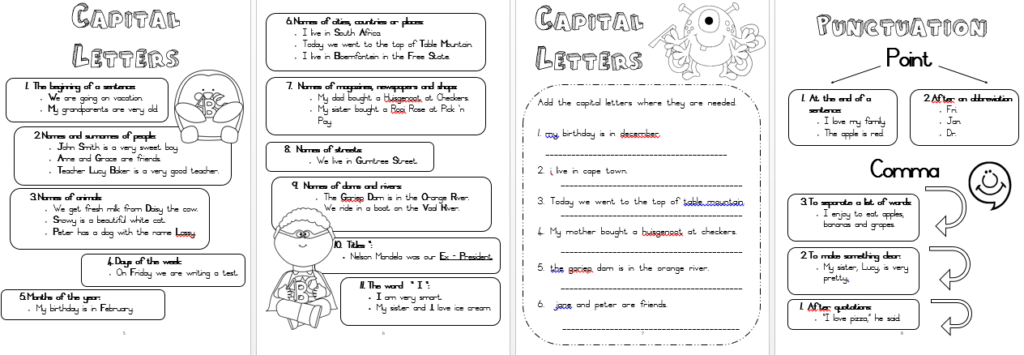 Capital
Letters
1. The beginning of a sentence:
We are going on vacation.
My grandparents are very old.
2.Names and surnames of people:
John Smith is a very sweet boy.
Anne and Grace are friends.
Teacher Lucy Baker is a very good teacher.
3.Names of animals:
We get fresh milk from Daisy the cow.
Snowy is a beautiful white cat.
Peter has a dog with the name Lassy.
4.Days of the week:
On Friday we are writing a test.
5.Months of the year:
My birthday is in February.
5
6.Names of cities, countries or places:
I live in South Africa.
Today we went to the top of Table Mountain.
I live in Bloemfontein in the Free State.
7. Names of magazines, newspapers and shops:
My dad bought a Huisgenoot at Checkers.
My sister bought a Rooi Rose at Pick 'n
Pay.
8. Names of streets:
We live in Gumtree Street.
9. Names of dams and rivers:
The Gariep Dam is in the Orange River.
We ride in a boat on the Vaal River.
10. Titles ":
Nelson Mandela was our Ex - President.
11. The word " I ":
I am very smart.
My sister and I love ice cream.
6
Capital
Letters
Add the capital letters where they are needed.
1. my birthday is in december.
2. i live in cape town.
3. Today we went to the top of table mountain.
4. My mother bought a huisgenoot at checkers.
5. the gariep dam is in the orange river.
6. jane and peter are friends.
7
Punctuation
Point
1. At the end of a
sentence:
I love my family.
The apple is red.
2.After an abbreviation:
Fri.
Jan.
Dr.
Comma
3.To separate a list of words:
I enjoy to eat apples,
bananas and grapes.
2.To make something clear:
My sister, Lucy, is very
pretty.
1. After quotations:
"I love pizza," he said.
8